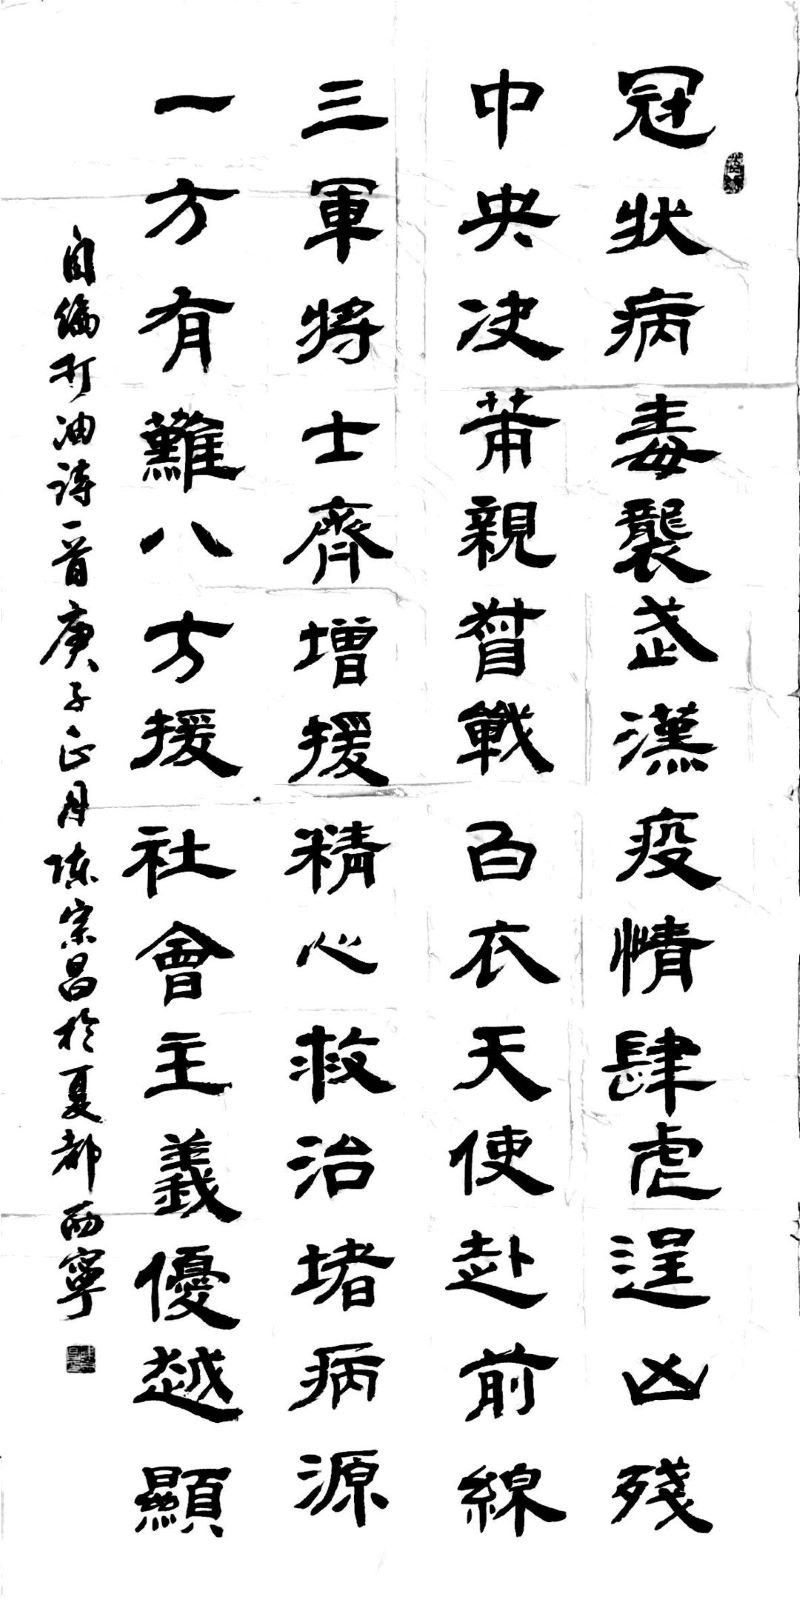 冠狀病毒襲武漢疫情肆虐逞凶殘
中央决莆親督戰白衣天使赴前線
三軍將士齊增援精心救治堵病源
一方有難八方援社會主義優越顯
自编打油诗一首庚子正月陈宗昌於夏都西寧